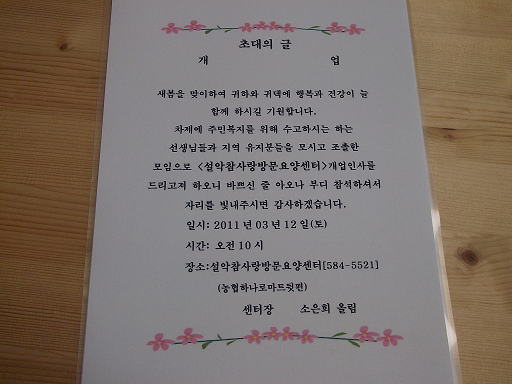 초대의 글
개 업
새봄을 맞이하여 귀하와 귀댁에 행복과 건강이 늘
함께 하시길 기원합니다.
차제에 주민복지를 위해 수고하시는 하는
선생님들과 지역 유지분들을 모시고 조촐한
모임으로 <설악참사랑방문요양센터>개업인사를
드리고저 하오니 바쁘신 줄 아오나 부디 참석하셔서
자리를 빛내주시면 감사하겠습니다.
일시: 2011 년 03 월 12 일(토)
시간: 오전 10 시
장소:설악참사랑방문요양센터[584-5521]
(농협하나로마트뒷편)
센터장 소은희 올림